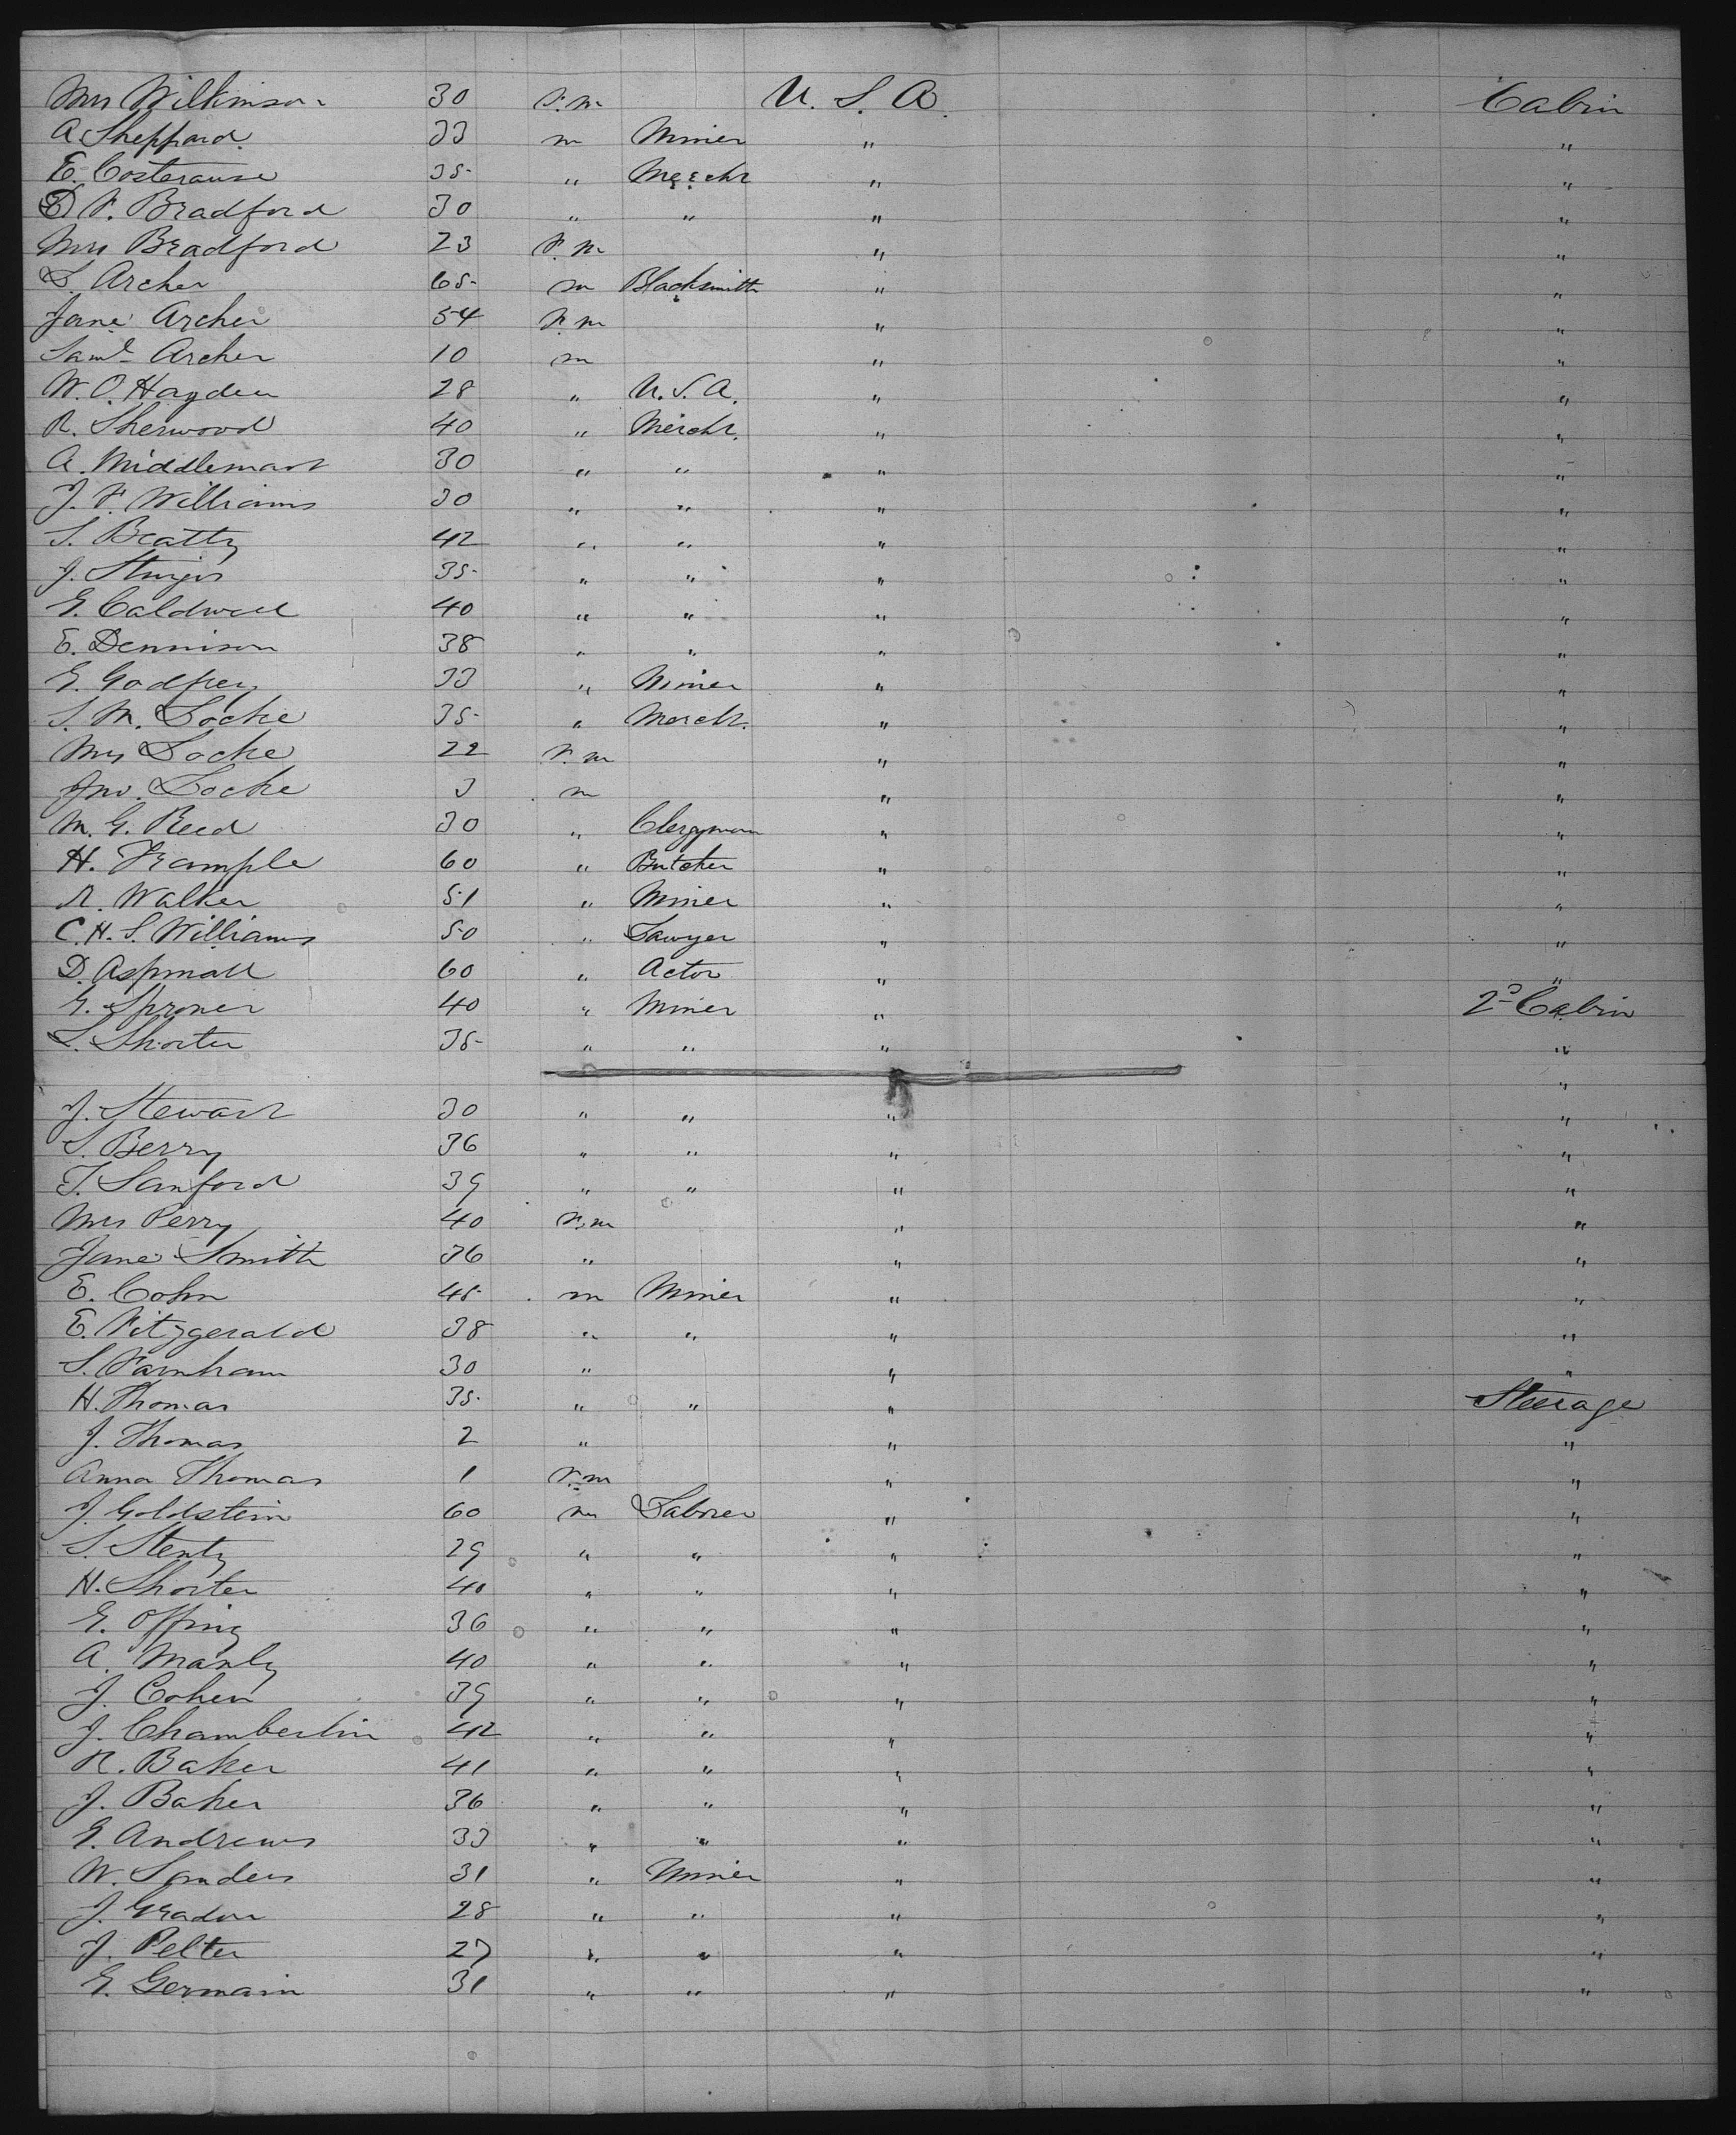 Mrs Wilkinson 30 F.m U. S. A. Cabin
A. Sheppard 33 m Miner " "
E. Costerause 35 " Merchr " "
D F. Bradford 30 " " " "
Mrs Bradford 23 F.m " "
S. Archer 65 m Blacksmith " "
Jane Archer 54 F.m " "
Saml Archer 10 m " "
W. O. Hayden 28 " U.S.A. " "
R. Sherwood 40 " Mercht. " "
A. Middlemast 30 " " " "
J. F. Williams 30 " " " "
S. Beatty 42 " " " "
J. Sturgis 35 " " " "
G. Caldwell 40 " " " "
E. Dennison 38 " " " "
G. Godfrey 33 " Miner " "
S. M. Locke 35 " Mercht. " "
Mrs Locke 22 F.m " "
Jno. Locke 3 m " "
M. G. Reed 30 " Clergyman " "
H. Trample 60 " Butcher " "
R. Walker 51 " Miner " "
C. H. S. Williams 50 " Lawyer " "
D. Aspinall 60 " Actor " "
G. Sproner 40 " Miner " 2d Cabin
L. Shorter 35 " " " "
"
J. Stewart 30 " " " "
S. Berry 36 " " " "
T. Sanford 39 " " " "
Mrs Perry 40 F.m " "
Jane Smith 36 " " "
E. Cohn 45 m Miner " "
E. Fitzgerald 38 " " " "
S. Farnham 30 " " "
H. Thomas 35 " " " Steerage
J. Thomas 2 " " "
Anna Thomas 1 F.m " "
J. Goldstein 60 m Laborer " "
S. Stentz 29 " " " "
H. Shorter 40 " " " "
G. Offing 36 " " " "
A. Manly 40 " " " "
J. Cohen 39 " " " "
J. Chamberlin 42 " " " "
R. Baker 41 " " " "
J. Baker 36 " " " "
G. Andrews 33 " " " "
W. Sanders 31 " Miner " "
J. Gradon 28 " " " "
J. Pelter 27 " " " "
G. Germain 31 " " " "